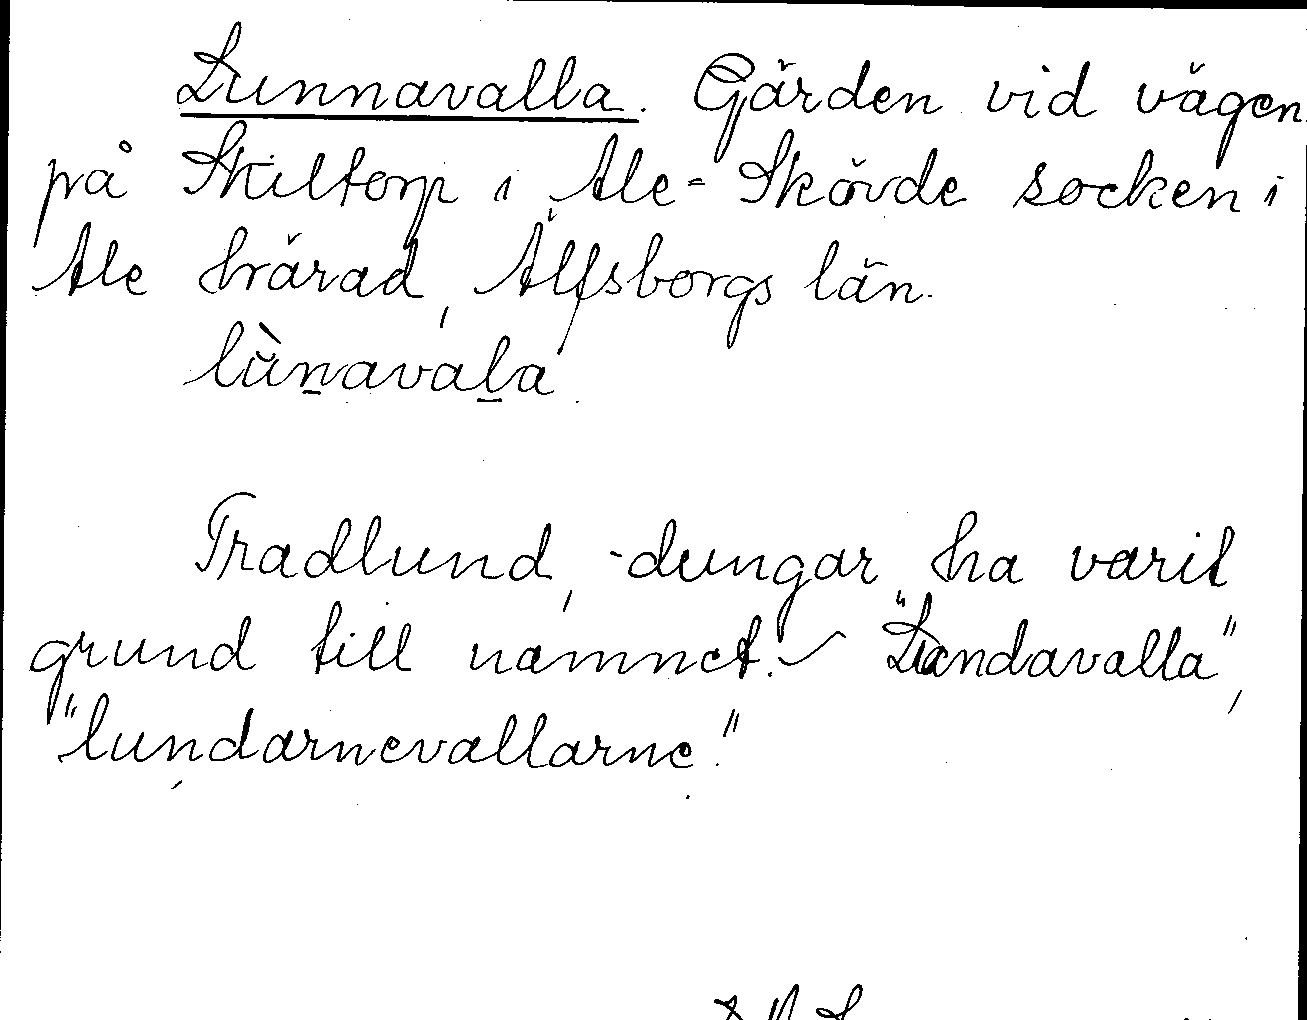 Lunnavalla. Gården vid vägen
på Skiltorp i Ale-Skövde socken i
Ale härad, Älfsborgs län.
lùn̠aval̠a
Trädlund, -dungar ha varit
grund till namnet. "Lundavalla",
"lundarnevallarne."